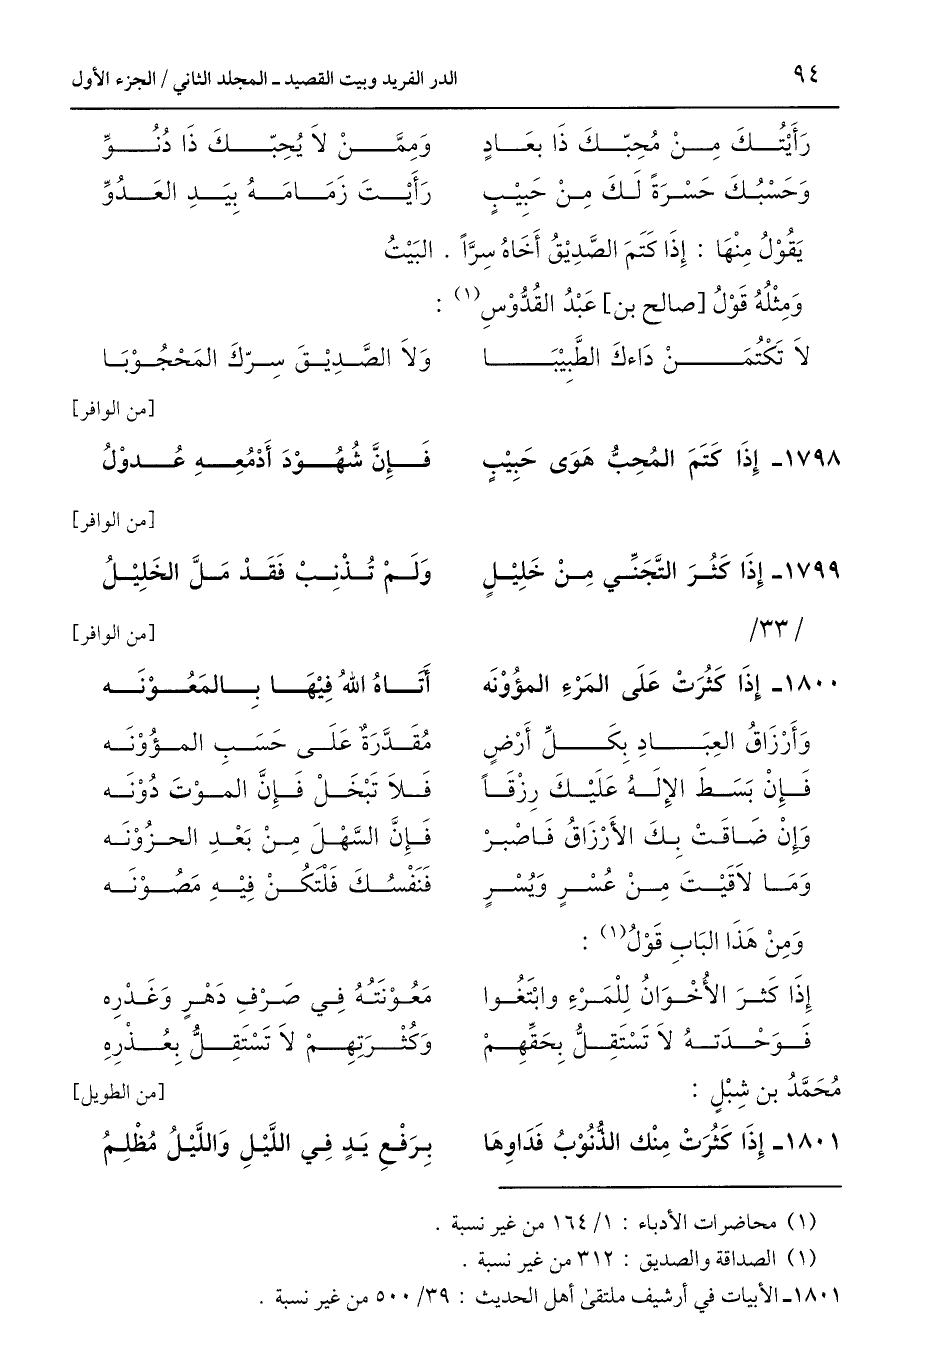 ٩٤ الدر الفريد وبيت القصيد ـ المجلد الثاني / الجزء الأول
رَأَيْتُكَ مِنْ مُحِبِّكَ ذَا بِعَادٍ وَمِمَّنْ لاَ يُحِبُّكَ ذَا دُنُوٍّ
وَحَسْبُكَ حَسْرَةً لَكَ مِنْ حَبِيْبٍ رَأَيْتَ زِمَامَهُ بِيَدِ العَدُوِّ
يَقُوْلُ مِنْهَا : إِذَا كَتَمَ الصَّدِيْقُ أَخَاهُ سِرَّاً . البَيْتُ
وَمِثْلُهُ قَوْلُ [صالح بن] عَبْدُ القُدُّوْسِ(١) :
لاَ تَكْتُمَنْ دَاءَكَ الطَّبِيْبَا وَلاَ الصَّدِيْقَ سِرّكَ المَحْجُوْبَا
[من الوافر]
١٧٩٨ـ إِذَا كَتَمَ المُحِبُّ هَوَى حَبِيْبٍ فَإِنَّ شُهُوْدَ أَدْمُعِهِ عُدوْلُ
[من الوافر]
١٧٩٩ـ إِذَا كَثُرَ التَّجَنِّي مِنْ خَلِيْلٍ وَلَمْ تُذْنِبْ فَقَدْ مَلَّ الخَلِيْلُ
/٣٣/ [من الوافر]
١٨٠٠ـ إِذَا كَثُرَتْ عَلَى المَرْءِ المؤُوْنَه أَتَاهُ اللهُ فِيْهَا بِالمَعُوْنَه
وَأَرْزَاقُ العِبَادِ بِكَلِّ أَرْضٍ مُقَدَّرَةٌ عَلَى حَسَبِ المؤُوْنَه
فَإِنْ بَسَطَ الإِلَهُ عَلَيْكَ رِزْقَاً فَلاَ تَبْخَلْ فَإِنَّ الموْتَ دُوْنَه
وَإِنْ ضَاقَتْ بِكَ الأَرْزَاقُ فَاصْبِرْ فَإِنَّ السَّهْلَ مِنْ بَعْدِ الحزُوْنَه
وَمَا لاَقَيْتَ مِنْ عُسْرٍ وَيُسْرٍ فَنَفْسُكَ فَلْتَكُنْ فِيْهِ مَصُوْنَه
وَمِنْ هَذَا البَابِ قَوْلُ(١) :
إِذَا كَثَرَ الأَخْوَانُ لِلْمَرْءِ وابْتَغُوا مَعُوْنَتُهُ فِي صَرْفِ دَهْرٍ وَغَدْرِهِ
فَوَحْدَتهُ لاَ تَسْتَقِلُّ بِحَقِّهِمْ وَكُثْرَتِهِمْ لاَ تَسْتَقِلُّ بِعُذْرِهِ
مُحَمَّدُ بن شِبْلٍ : [من الطويل]
١٨٠١ـ إِذَا كَثُرَتْ مِنْك الذُّنُوْبُ فَدَاوِهَا بِرَفْعِ يَدٍ فِي اللَّيْلِ وَاللَّيْلُ مُظْلِمُ
(١) محاضرات الأدباء : ١/ ١٦٤ من غير نسبة .
(١) الصداقة والصديق : ٣١٢ من غير نسبة .
١٨٠١ـ الأبيات في أرشيف ملتقى أهل الحديث : ٣٩/ ٥٠٠ من غير نسبة .